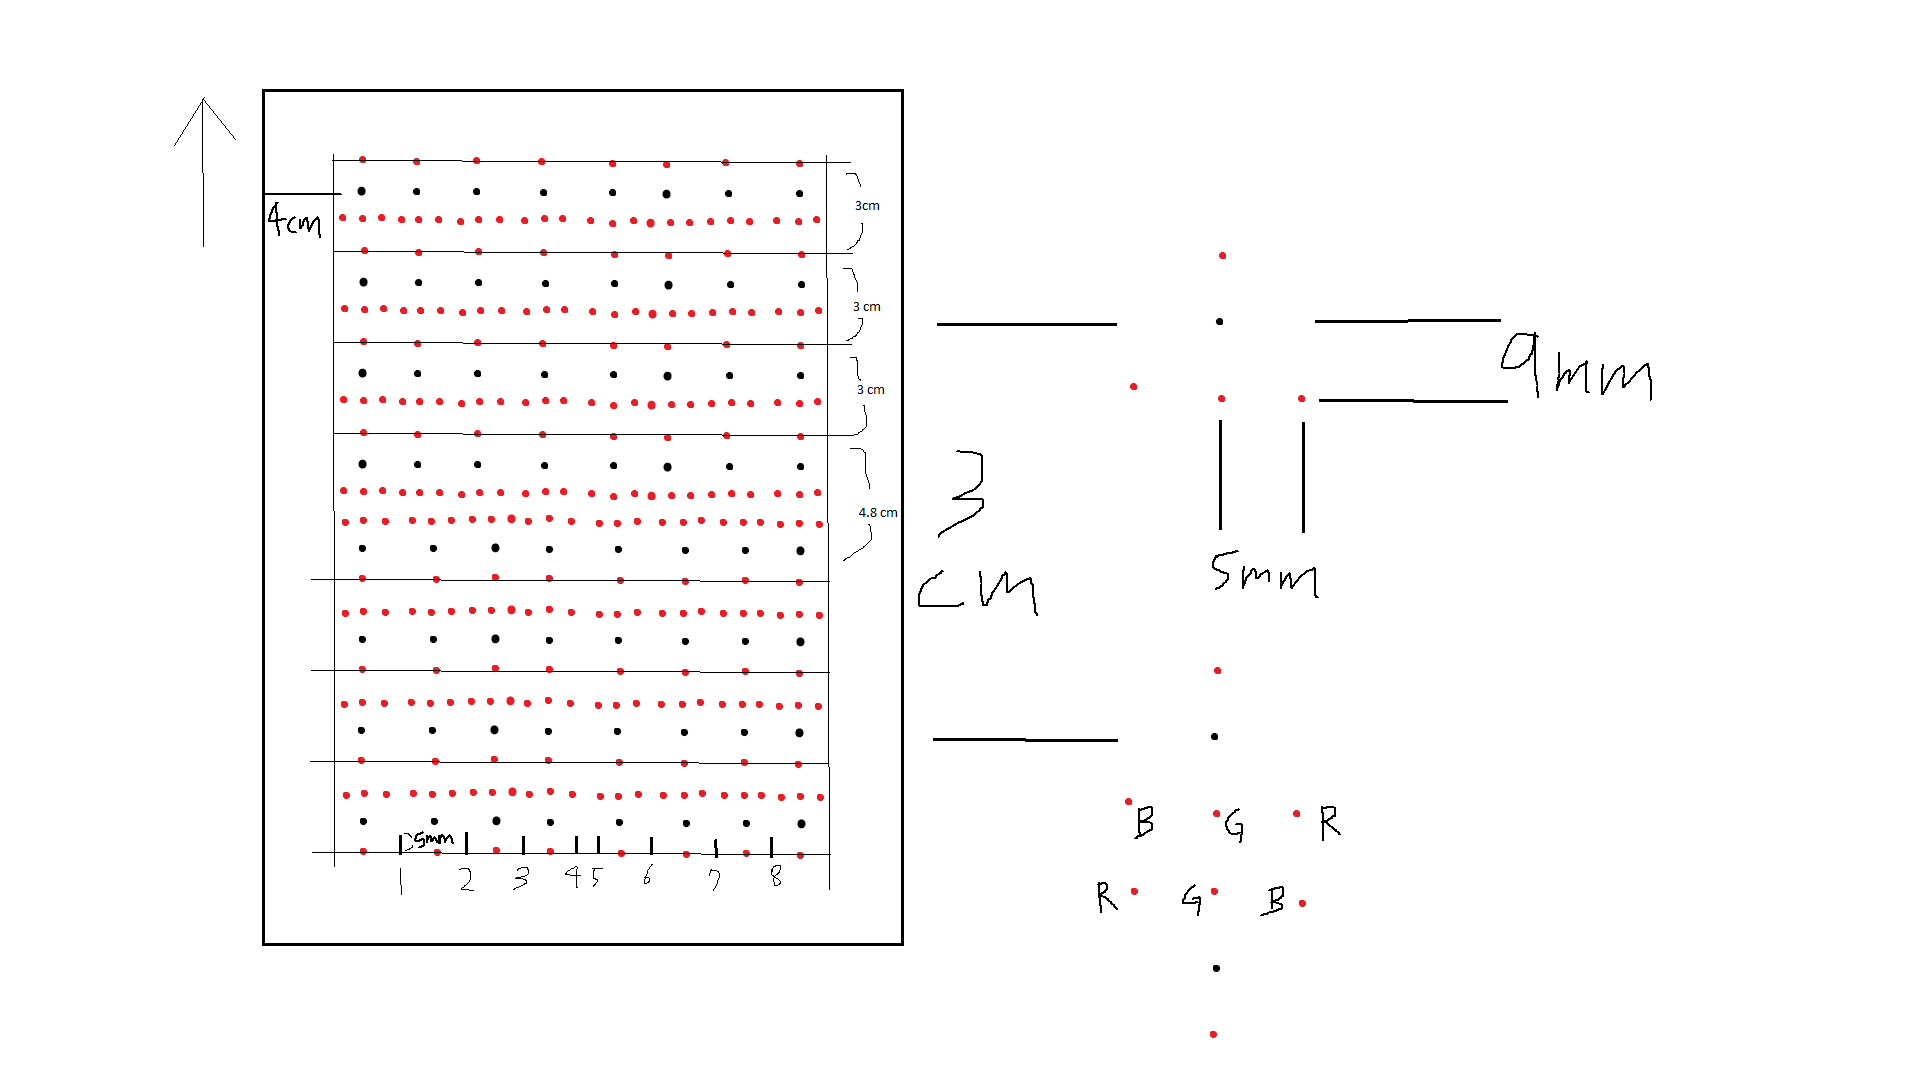 4cm
3cm
3 cm
3 cm
4.8 cm
5mm
1 2 3 4 5 6 7 8
9mm
3
cm
5mm
B G R
R G B